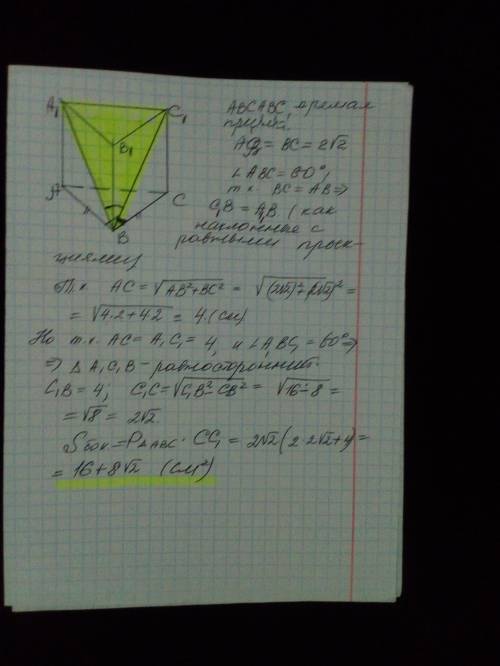 A₁
C₁
B₁
A
C
B
ABCABC, прямая
призм.
AB = BC = 2√2
∠ABC = 60°,
т.к. BC = AB ⇒
C₁B = A₁B (как
наклонные с
равными проек-
циями)
Т.к. AC = √AB² + BC² = √(2√2)² + (2√2)² =
= √4·2 + 4·2 = 4 (см)
Но т.к. AC = A₁C₁ = 4, и ∠A₁BC₁ = 60° ⇒
⇒ △A₁C₁B – равносторонний.
C₁B = 4; C₁C = √C₁B² – CB² = √16 – 8 =
= √8 = 2√2.
Sбок. = P△ABC · CC₁ = 2√2 (2·2√2 + 4) =
= 16 + 8√2 (см²)